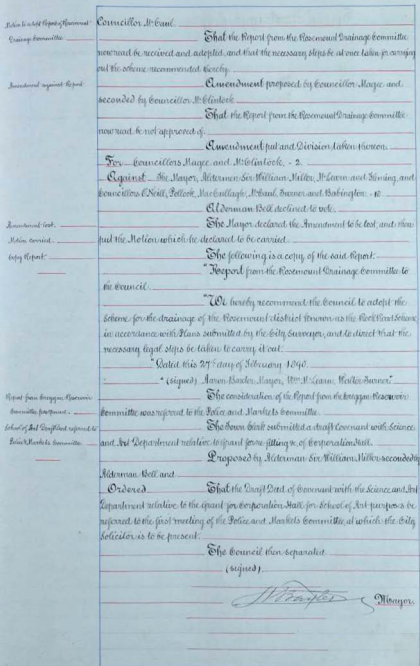 Motion to adopt Report of Rosemount
Drainage Committee.
Councillor McCaul.
That the Report from the Rosemount Drainage Committee
now read be received and adopted, and that the necessary steps be at once taken for carrying
out the scheme recommended thereby.
Amendment against Report
Amendment proposed by Councillor Magee and
seconded by Councillor McClintock
That the Report from the Rosemount Drainage Committee
now read be not approved of.
Amendment put and Division taken thereon
For Councillors Magee and McClintock. - 2.
Against The Mayor, Aldermen Sir William Miller, McLearn and
Councillors O'Neill, Pollock, MacCullagh, McCaul, Turner and Babington. - 10
Alderman Bell declined to vote.
Amendment lost.
The Mayor declared the Amendment to be lost, and then
Motion carried.
put the Motion which he declared to be carried.
Copy Report.
The following is a copy of the said Report:
"Report from the Rosemount Drainage Committee to
the Council
"We hereby recommend the Council to adopt the
Scheme for the drainage of the Rosemount district known as the Rock Road Scheme,
in accordance with Plans submitted by the City Surveyor, and to direct that the
necessary legal steps be taken to carry it out.
"Dated this 27th day of February 1896.
"(signed) Aaron Baxter Mayor, Wm McLearn,
Report from Creggan Reservoir
Committee postponed.
The consideration of the Report from the Creggan Reservoir
Committee was referred to the Police and Markets Committee.
School of Art Draft Deed referred to
Police & Markets Committee.
The Town Clerk submitted a draft Covenant with Science
and Art Department relative to grant for re-fitting &c of Corporation Hall.
Proposed by Alderman Sir William Miller seconded by
Alderman Bell and
Ordered That the Draft Deed of Covenant with the Science and Art
Department relative to the grant for Corporation Hall for School of Art purposes be
referred to the first meeting of the Police and Markets Committee, at which the City
Solicitor is to be present.
The Council then separated
(signed).
Mayor.